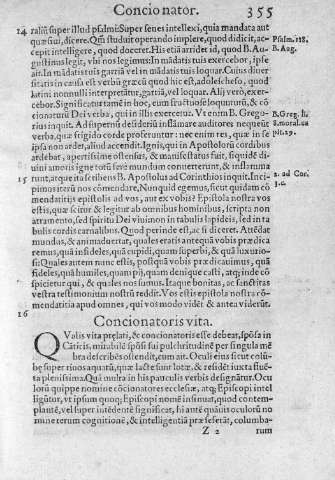 Concionator. 355
14 ralium super illud psalmi: Super senes intellexi, quia mandata tua
quæsiui, dicere. Qui studuit operando implere, quod didicit, ac- Psalm. 118.
cepit intelligere, quod doceret. His etiã arridet id, quod B. Au- B. Aug.
gustinus legit, vbi nos legimus: In mãdatis tuis exercebor, ipse
ait. In mãdatis tuis garriã vel in mãdatis tuis loquar. Cuius diuer
sitatis in causa est verbũ græcũ quod hic est, adoleschəso, quod
latini nonnulli interpretãtur, garriã, vel loquar. Alij verò, exer-
cebor. Significatur tamẽ in hoc, eum fructuose loquuturũ, & cõ
cionaturũ Dei verba, qui in illis exercetur. Vt enim B. Grego- B. Greg. li.
rius inquit. Ad supernũ desideriũ inflãmare auditores nequeũt 8. moral. ca
verba, quæ frigido corde proferuntur: nec enim res, quæ in se pit. 29.
ipsa non ardet, aliud accendit. Ignis, qui in Apostolorũ cordibus
ardebat, apertissime ostensus, & manifestatus fuit, siquidẽ di-
uini amoris igne totũ ferè mundum conuerterunt, & inflamma
15 runt, atque ita scribens B. Apostolus ad Corinthios inquit. Inci- 2. ad Cor.
pimus iterũ nos comendare, Nunquid egemus, sicut quidam cõ 3. c.
mendatitijs epistolis ad vos, aut ex vobis? Epistola nostra vos
estis, quæ scitur & legitur ab omnibus hominibus, scripta non
atramento, sed spiritu Dei viui non in tabulis lapideis, sed in ta
bulis cordis carnalibus. Quod perinde est, ac si diceret. Attẽdat
mundus, & animaduertat, quales eratis antequã vobis prædica
remus, quã infideles, quã cupidi, quam superbi, & quã luxurio-
si: Quales autem nunc estis, postquã vobis prædicauimus, quã
fideles, quã humiles, quam pij, quam denique casti, atq; inde cõ
spicietur qui, & quales nos sumus. Itaque bonitas, ac sanctitas
vestra testimonium nostrũ reddit. Vos estis epistola nostra cõ-
mendatitia apud omnes, qui vos modo vidẽt & antea viderũt.
16
Concionatoris vita.
QValis vita prelati, & concionatoris esse debeat, spõsa in
Cãticis, mirabilẽ spõsi sui pulchritudinẽ per singula mẽ
bra describẽs ostendit, cum ait. Oculi eius sicut colũ-
bæ super riuos aquarũ, quæ lacte sunt lotæ, & residẽt iuxta fluẽ
ta plenissima. Quã multa in his pauculis verbis designãtur. Ocu
lorũ quippe nomine cõcionatores ecclesiæ, atq; Episcopi intel
ligũtur, vt ipsum quoq; Episcopi nomẽ insinuat, quod contem-
plantẽ, vel super intẽdentẽ significat, hi antẽ quãuis oculorũ no
mine terum cognitionẽ, & intelligentiã præseferãt, columba-
Z 2 rum